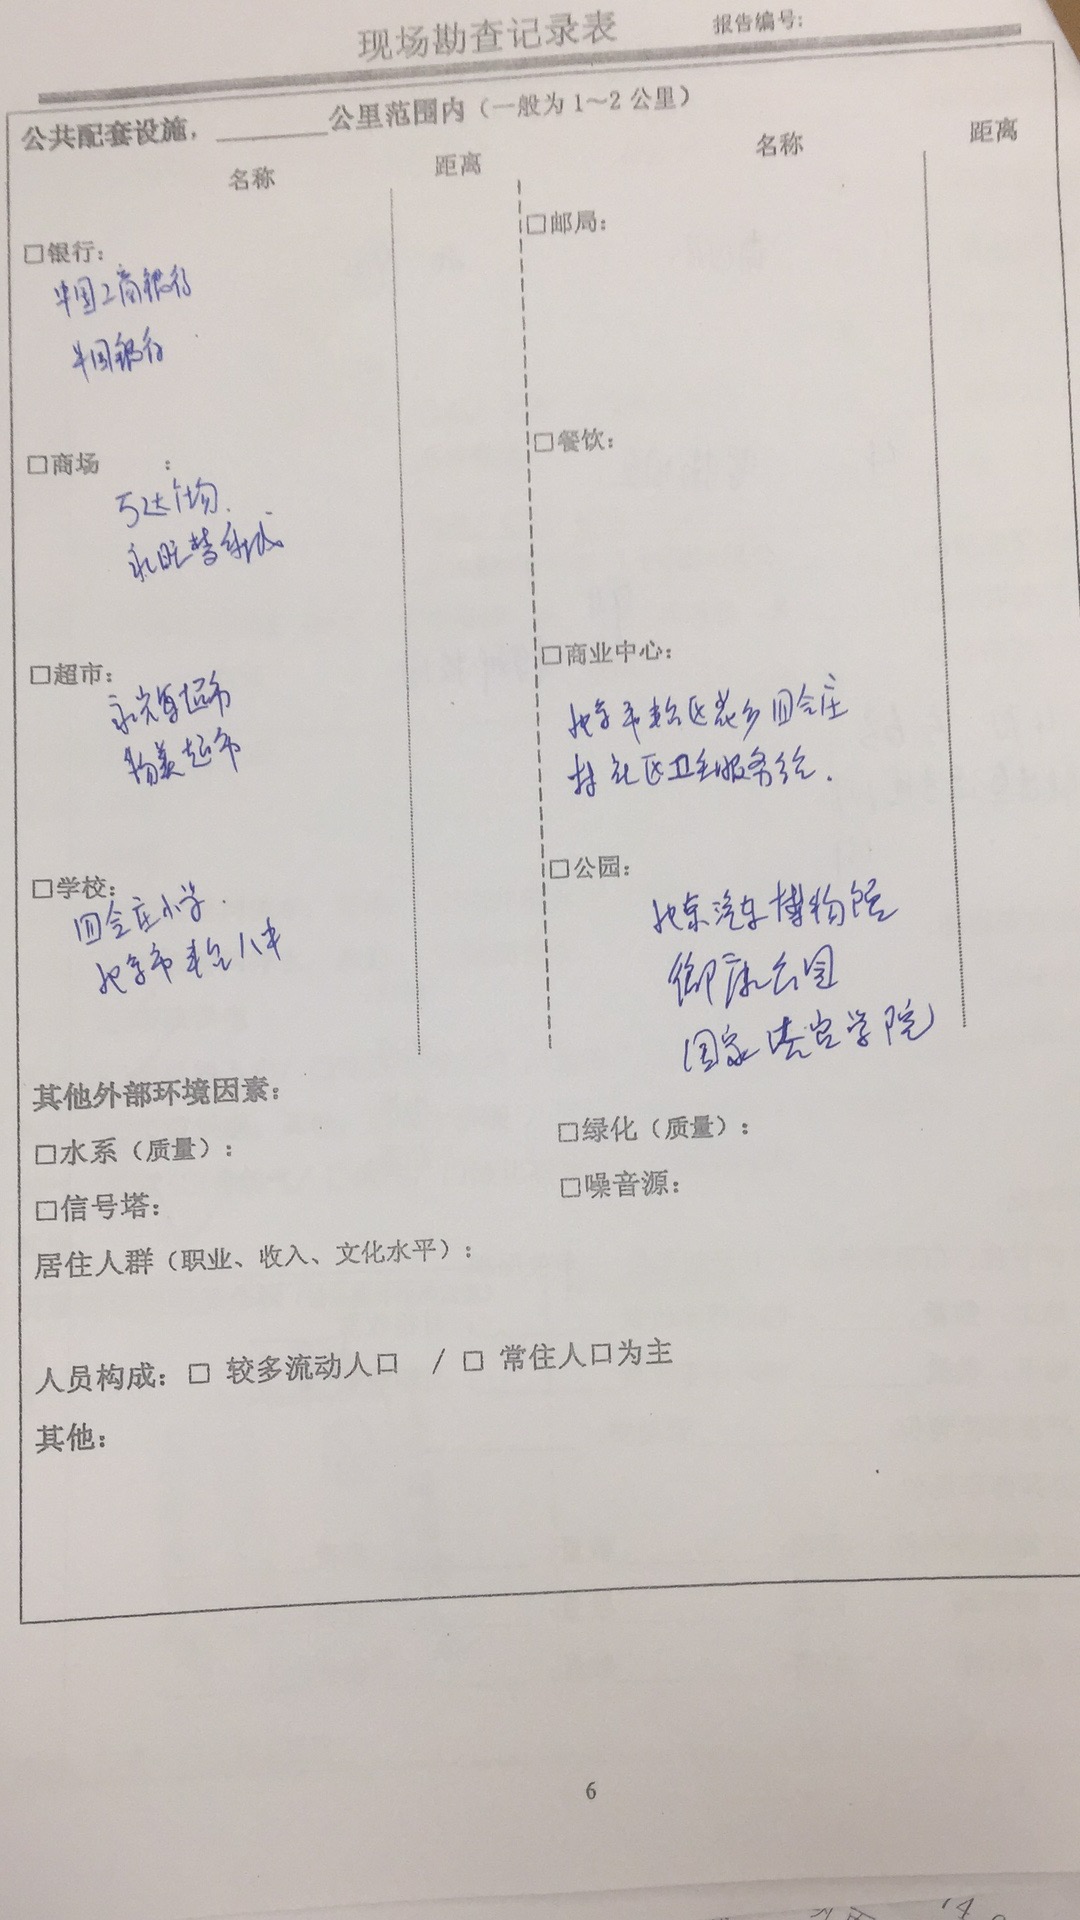 现场勘查记录表
报告编号:
公共配套设施,________公里范围内(一般为1~2公里)
名称 距离 名称 距离
□银行: □邮局:
中国工商银行
中国银行
□商场 : □餐饮:
万达广场.
永旺梦乐城
□超市: □商业中心:
物美超市
北京市丰台区花乡四合庄
村社区卫生服务站.
□学校: □公园:
四合庄小学.
北京市丰台八中
北京汽车博物馆
御康公园
国家法官学院
其他外部环境因素:
□水系(质量): □绿化(质量):
□信号塔: □噪音源:
居住人群(职业、收入、文化水平):
人员构成: □ 较多流动人口 / □ 常住人口为主
其他:
6